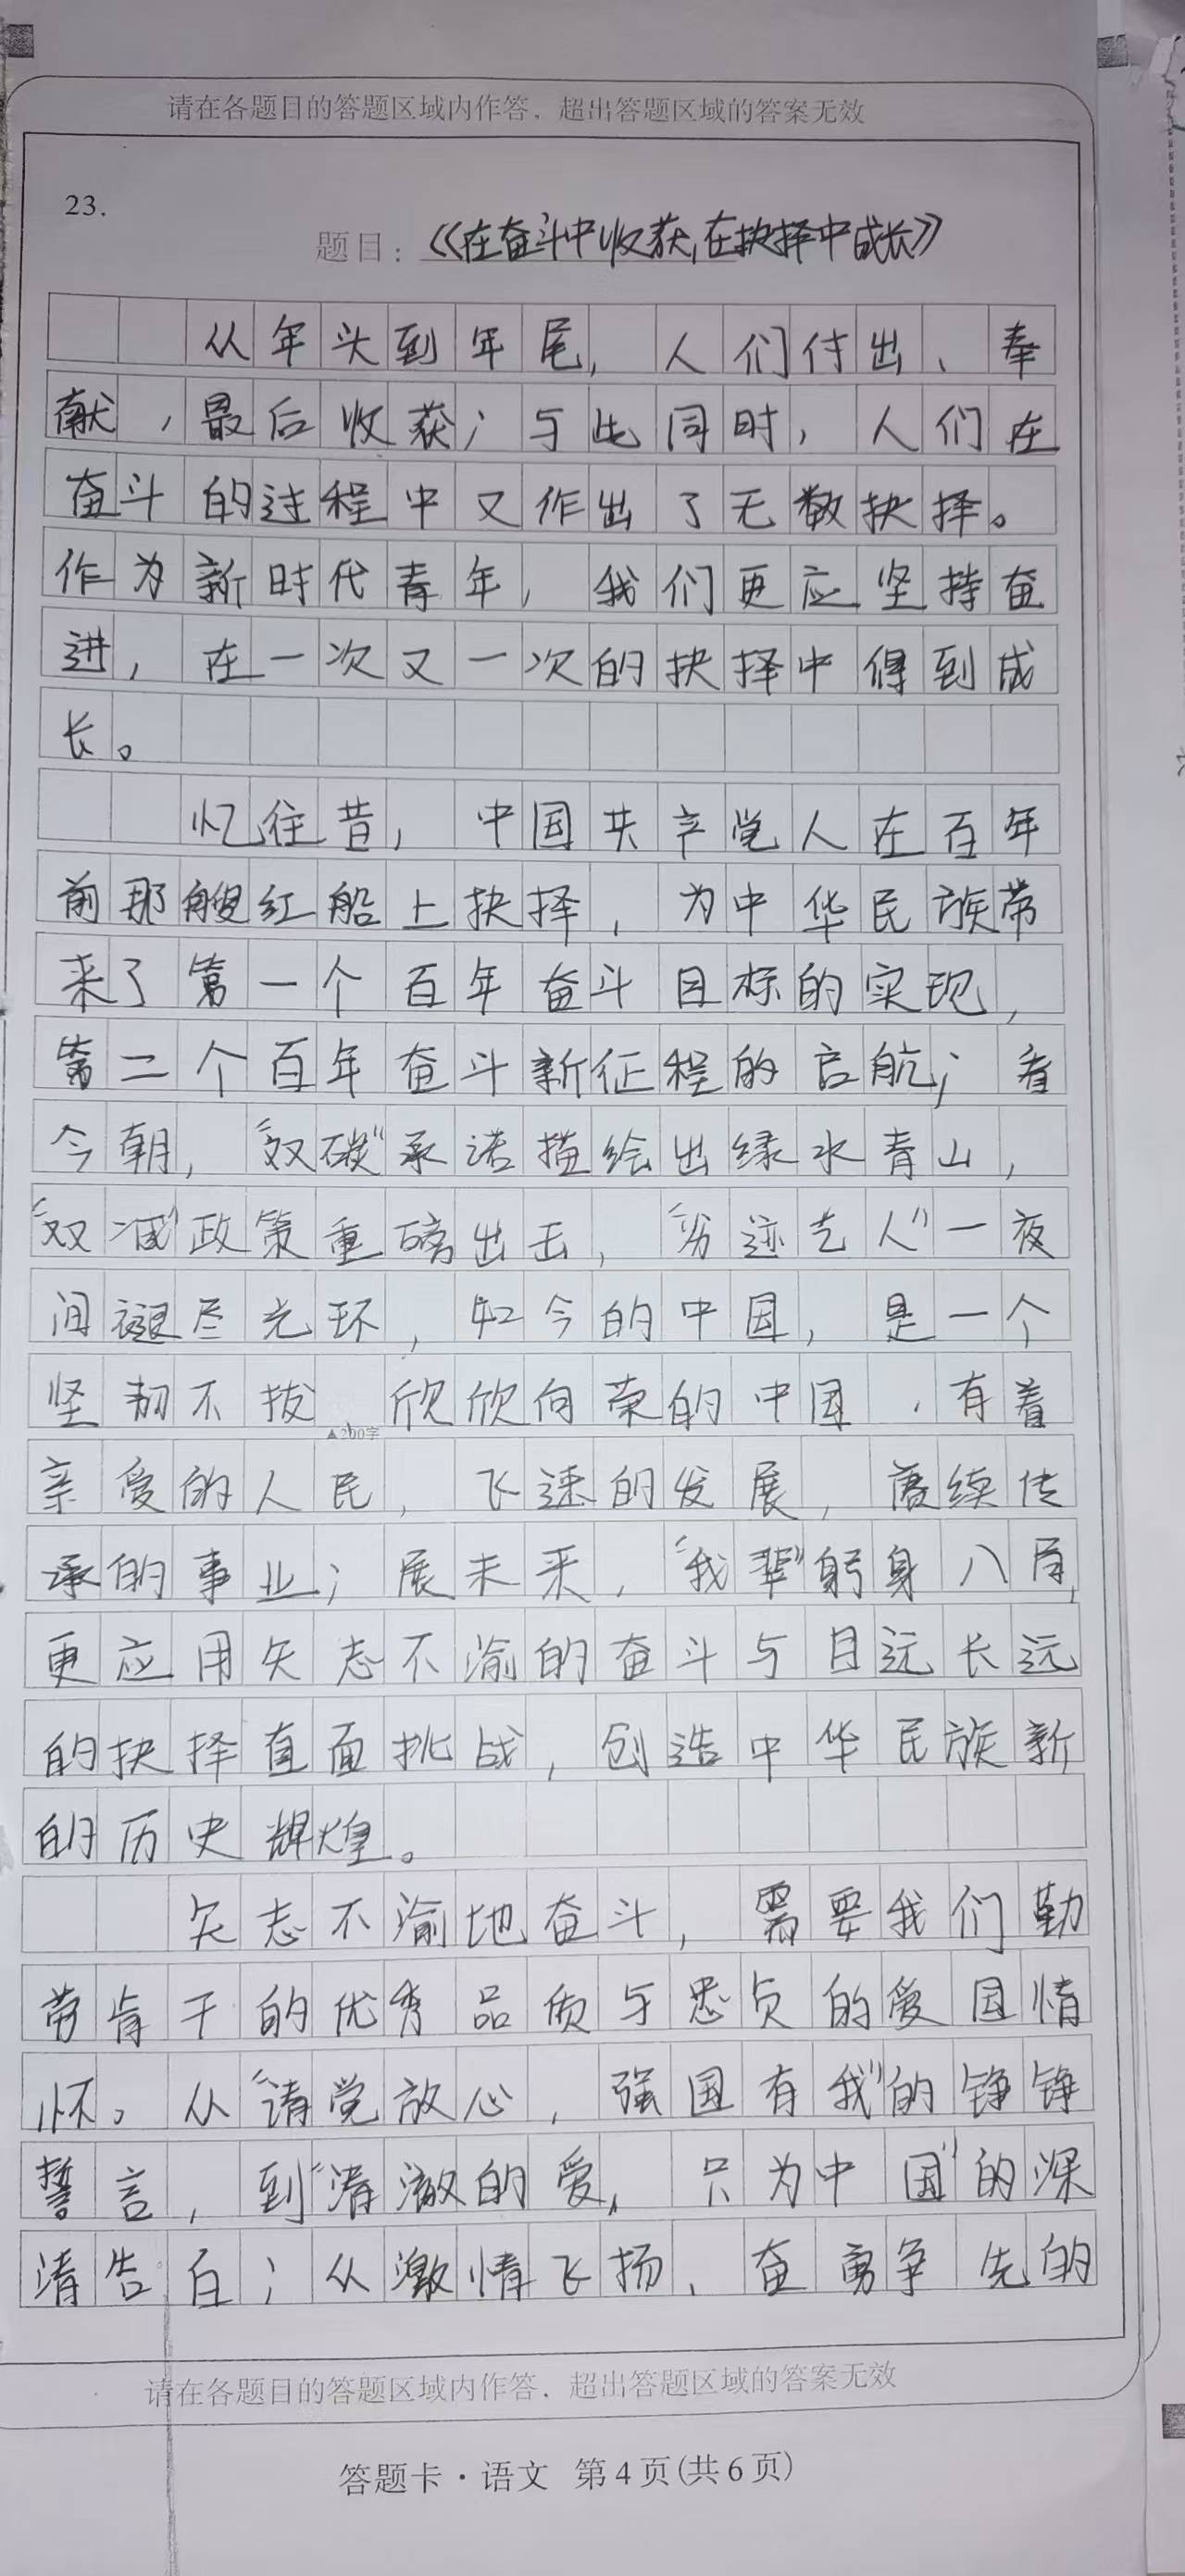 请在各题目的答题区域内作答，超出答题区域的答案无效
23.
题目：《在奋斗中收获,在抉择中成长》
从年头到年尾，人们付出、奉
献，最后收获；与此同时，人们在
奋斗的过程中又作出了无数抉择。
作为新时代青年，我们更应坚持奋
进，在一次又一次的抉择中得到成
长。
忆往昔，中国共产党人在百年
前那艘红船上抉择，为中华民族带
来了第一个百年奋斗目标的实现，
第二个百年奋斗新征程的启航；看
今朝，“双碳”承诺描绘出绿水青山，
“双减”政策重磅出击，“劣迹艺人”一夜
间褪尽光环，如今的中国，是一个
坚韧不拔 欣欣向荣的中国，有着
▲200字
亲爱的人民，飞速的发展，赓续传
承的事业；展未来，“我辈”躬身入局，
更应用矢志不渝的奋斗与目远长远
的抉择直面挑战，创造中华民族新
的历史辉煌。
矢志不渝地奋斗，需要我们勤
劳肯干的优秀品质与忠贞的爱国情
怀。从“请党放心，强国有我”的铮铮
誓言，到“清澈的爱，只为中国”的深
清告白；从激情飞扬、奋勇争先的
请在各题目的答题区域内作答，超出答题区域的答案无效
答题卡·语文 第4页(共6页)